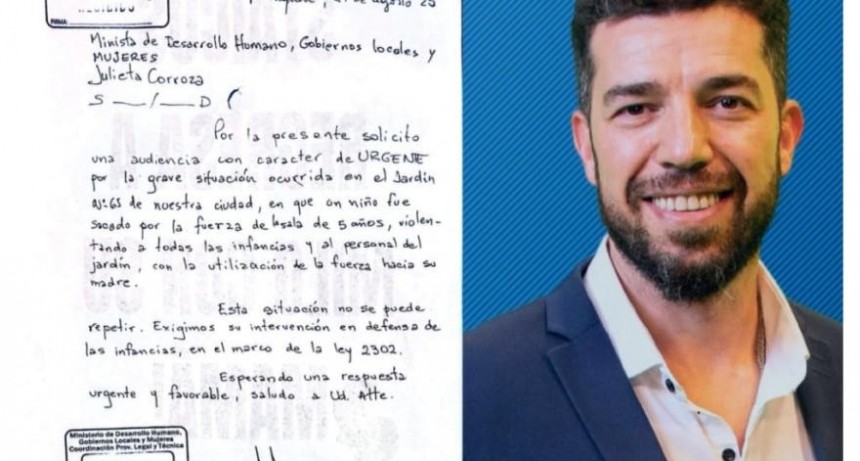 RECIBIDO
FIRMA:
Agosto 25
Minista de Desarrollo Humano, Gobiernos locales y
MUJERES
Julieta Corroza
S ___/___ D (
Por la presente solicito
una audiencia con caracter de URGENE
por la grave situación ocurrida en el Jardin
N°63 de nuestra ciudad, en que un niño fue
sacado por la fuerza de la sala de 5 años, violen-
tando a todas las infancias y al personal del
jardín, con la utilización de la fuerza hacia su
madre.
Esta situación no se puede
repetir. Exigimos su intervención en defensa de
las infancias, en el marco de la ley 2302.
Esperando una respuesta
urgente y favorable, saludo a Ud. Atte.
Ministerio de Desarrollo Humano,
Gobiernos Locales y Mujeres
Coordinación Prov. Legal y Técnica